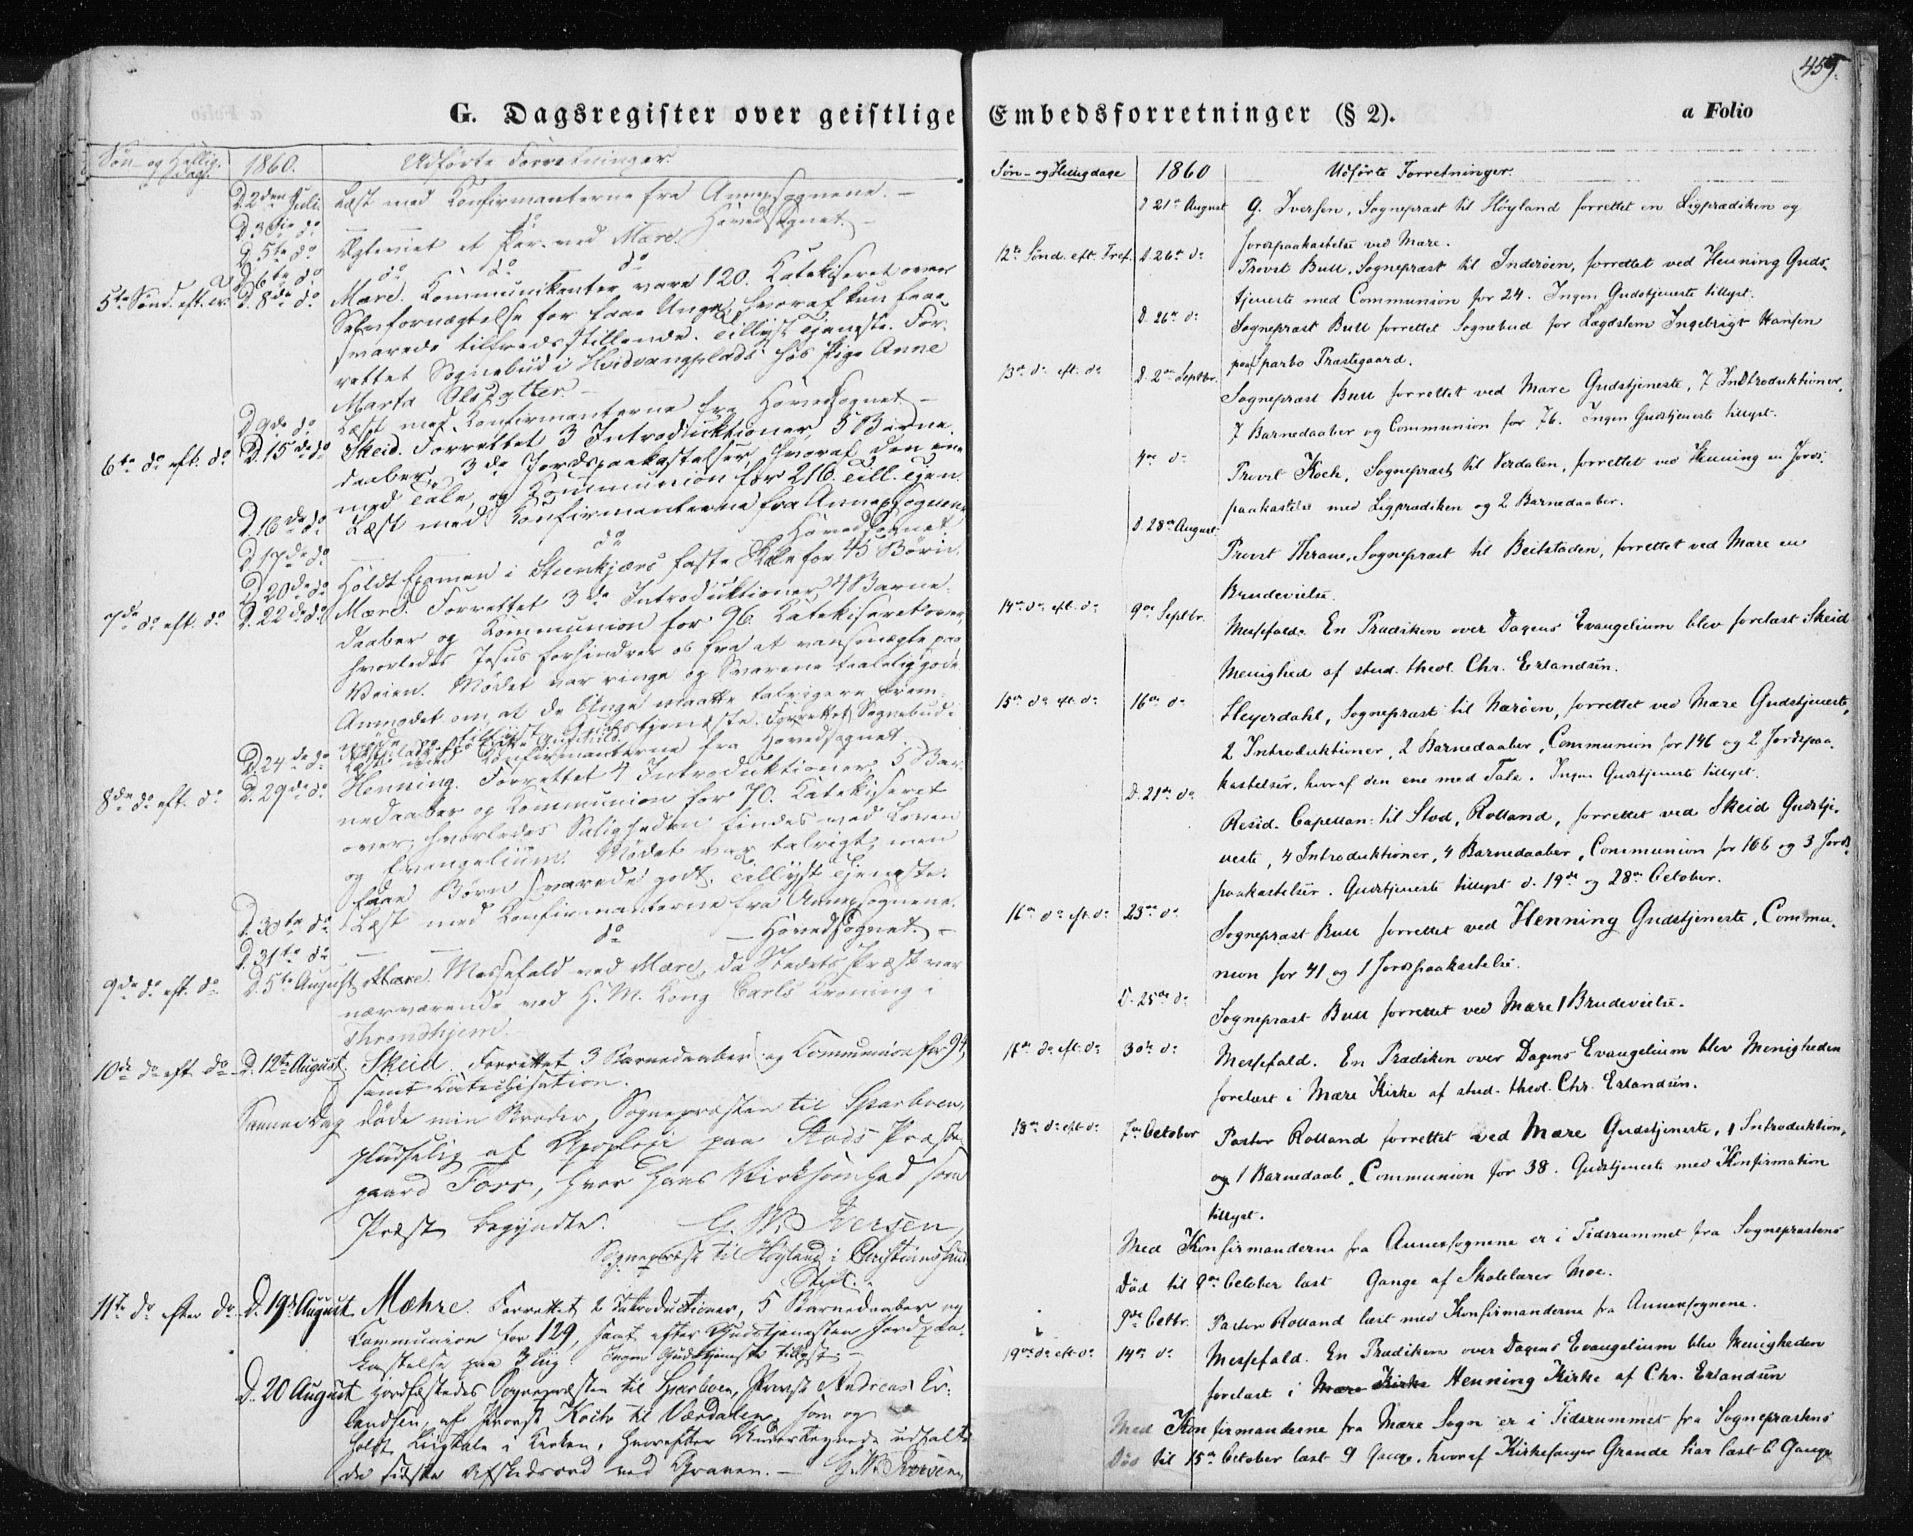 459.
G. Dagsregister over geistlige
Søn- og Hellig-
dage. 1860. Udførte Forretninger
D. 2den Juli. Læst med Konfirmanterne fra Annexsognene. –
D. 3die do — — do Hovedsognet –
D. 5te do Ægteviet et Par ved Mære.
D. 6te do do do do
5te Sønd. eft. Tr. D. 8de do Mære. Kommunikanter vare 120. Katekiseret over
Selvfornægtelse for faae Unge, hvoraf kun faae
svarede tilfredsstillende. Tillyst Tjeneste. For-
rettet Sognebud i Hvidvangplads hos Pige Anne
Marta Olsdatter. –
D. 9de do Læst med Konfirmanterne fra Hovedsognet –
6te do eft. do D. 15de do Skeid. Forrettet 3 Introduktioner, 5 Barne-
daaber, 3de Jordspaakastelser, hvoraf den ene
med Tale, og Kommunion for 216. Till. Tjen.
D. 16de do Læst med Konfirmanterne fra Annexsognene
D. 17de do — — do Hovedsognet
D. 20de do Holdt Examen i Steenkjærs faste Skole for 45 Børn.
7de do eft. do D. 22de do Mære. Forrettet 3de Introduktioner, 4 Barne-
daaber og Kommunion for 96. Katekiseret over,
hvorledes Jesus forhindrer os fra at vansmægte paa
Veien. Mødet var ringe og Svarene taalelig gode.
Anmodet om, at de Unge maatte talrigere frem-
møde. Tillyst Gudstjeneste. Forrettet Sognebud i
D. 24de do Læst med Konfirmanterne fra Hovedsognet
8de do eft. do D. 29de do Henning. Forrettet 4 Introduktioner, 5 Bar-
nedaaber og Kommunion for 70. Katekiseret
over, hvorledes Saligheden findes ved Loven
og Evangelium. Mødet var talrigt, men
faae Børn svarede godt. Tillyst Tjeneste.
D. 30te do Læst med Konfirmanterne fra Annexsognene.
D. 31te do — — do — Hovedsognet –
9de do eft. do D. 5te August Mære. Messefald ved Mære, da Stedets Præst var
nærværende ved H. M. Kong Carls Kroning i
Throndhjem.
10de do eft do D. 12te August. Skeid. Forrettet 3 Barnedaaber og Communion for 94,
samt Katechisation.
Samme Dag døde min Broder, Sognepræsten til Sparboen,
pludselig af Apoplexi paa Stods Præste-
gaard Foss, hvor hans Virksomhed som
Præst begyndte. G. W. Iversen,
Sognepræst til Høyland i Christianssands
Stift.
11te do efter do D. 19de August Mæhre. Forrettet 2 Introductioner, 5 Barnedaaber og
Communion for 129, samt efter Gudstjenesten Jordpaa-
kastelse paa 3 Lig. Ingen Gudstjeneste tillyst –
D. 20 August Jordfæstedes Sognepræsten til Sparboen, Provst Andreas Er-
landsen, af Provst Koch til Værdalen, som og
holdt Ligtale i Kirken, hvorefter Undertegnede udtalte
de sidste Afskedsord ved Graven. – G. W. Iversen,
Embedsforretninger (§ 2). a Folio
Søn- og Helligdage 1860 Udførte Forretninger.
D. 21de August G. Iversen, Sognepræst til Høyland forrettet en Ligprædiken og
Jordspaakastelse ved Mære.
12te Sønd. eft. Tref. D. 26de do Provst Bull, Sognepræst til Inderøen, forrettet ved Henning Guds-
tjeneste med Communion for 24. Ingen Gudstjeneste tillyst.
D. 26de do Sognepræst Bull forrettet Sognebud for Lægdslem Ingebrigt Hansen
paa Sparbo Præstegaard.
13de do eft. do D. 2den Septbr. Sognepræst Bull forrettet ved Mære Gudstjeneste, 7 Indtroduktioner,
7 Barnedaaber og Communion for 76. Ingen Gudstjeneste tillyst.
4de do Provst Koch, Sognepræst til Verdalen, forrettet ved Henning en Jords-
paakastelse med Ligprædiken og 2 Barnedaaber.
D. 28de August Provst Thrane, Sognepræst til Beitstaden, forrettet ved Mære en
Brudevielse.
14de do eft. do 9de Septbr. Messefald. En Prædiken over Dagens Evangelium blev forelæst Skeid
Menighed af stud. theol. Chr. Erlandsen.
15de do eft. do 16de do Heyerdahl, Sognepræst til Nærøen, forrettet ved Mære Gudstjeneste,
2 Introduktioner, 2 Barnedaaber, Communion for 146 og 2 Jordspaa-
kastelser, hvoraf den ene med Tale. Ingen Gudstjeneste tillyst.
D. 21de do Resid. Capellan til Stod, Rolland, forrettet ved Skeid Gudstje-
neste, 4 Introduktioner, 4 Barnedaaber, Communion for 166 og 3 Jords-
paakastelser. Gudstjeneste tillyst d. 19de og 28de October.
16de do eft. do 23de do Sognepræst Bull forrettet ved Henning Gudstjeneste, Commu-
nion for 41 og 1 Jordspaakastelse.
D. 25de do Sognepræst Bull forrettet ved Mære 1 Brudevielse.
17de do eft. do 30te do Messefald. En Prædiken over Dagens Evangelium blev Menigheden
forelæst i Mære Kirke af stud. theol. Chr. Erlandsen.
18de do eft do 7de October Pastor Rolland forrettet ved Mære Gudstjeneste, 1 Introduktion,
og 1 Barnedaab, Communion for 38. Gudstjeneste med Konfirmation
tillyst.
Med Konfirmanderne fra Annexsognene er i Tidsrummet fra Sognepræstens
Død til 9de October læst Gange af Skolelærer Moe.
9de Octbr. Pastor Rolland læst med Konfirmanderne fra Annexsognene.
19de do eft do 14de do Messefald. En Prædiken over Dagens Evangelium blev Menigheden
forelæst i Mære Kirke Henning Kirke af Chr. Erlandsen
Med Konfirmanderne fra Mære Sogn er i Tidsrummet fra Sognepræstens
Død til 15de October læst 9 Gange, hvoraf Kirkesanger Grande har læst 6 Gange